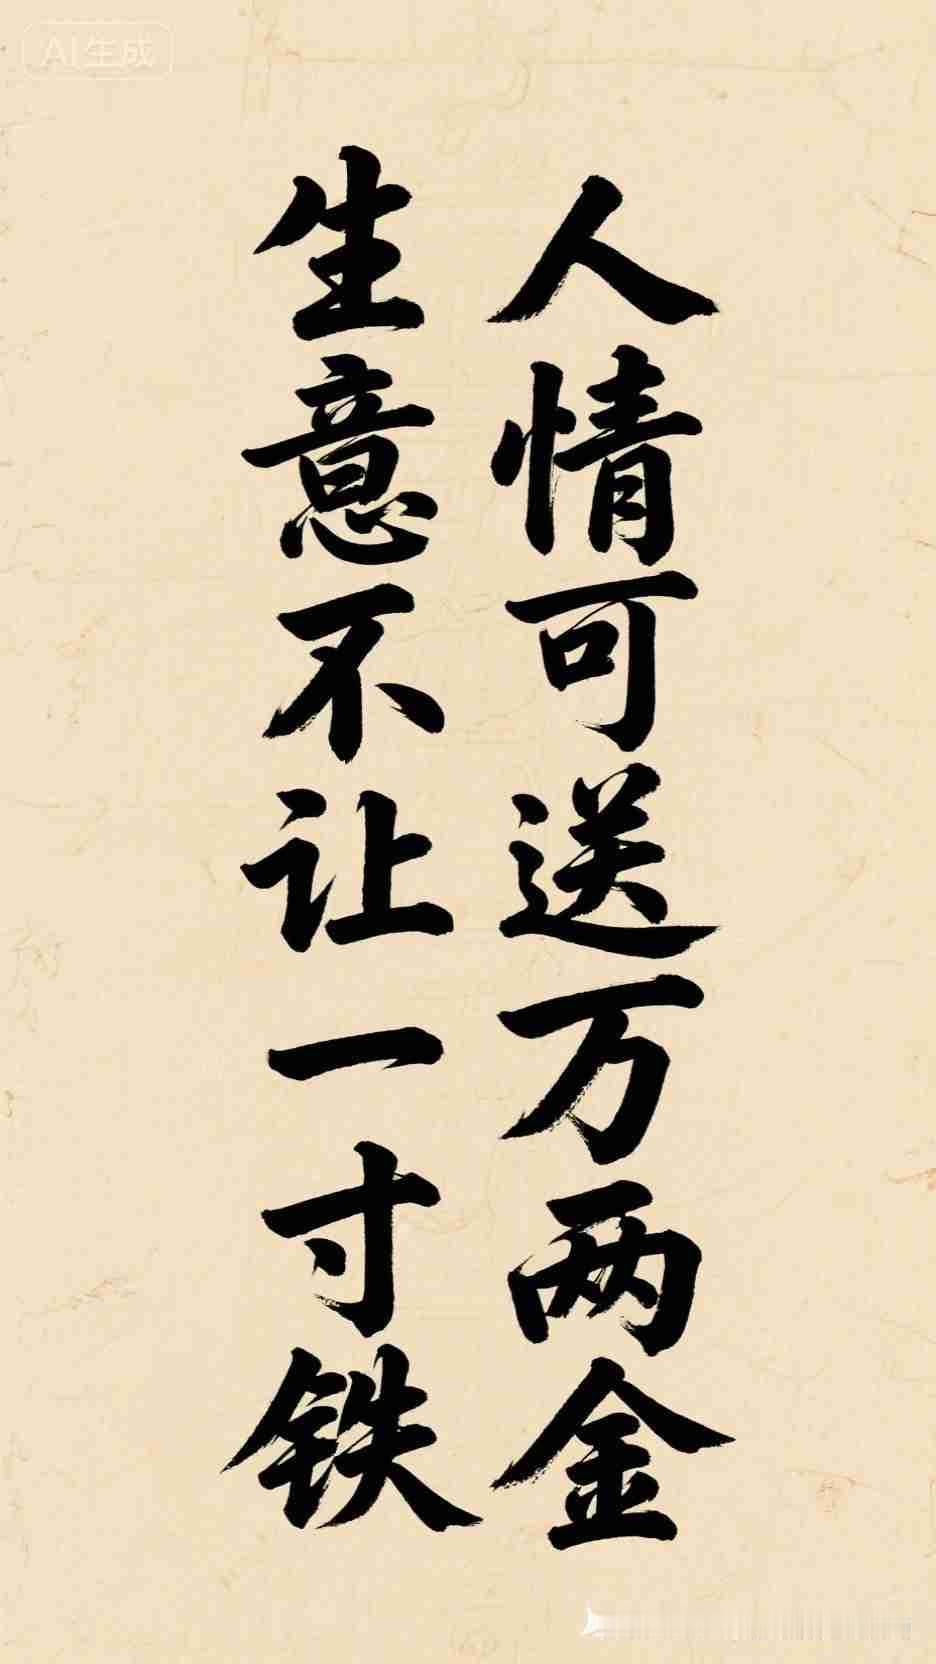 AI生成
人情可送万两金
生意不让一寸铁